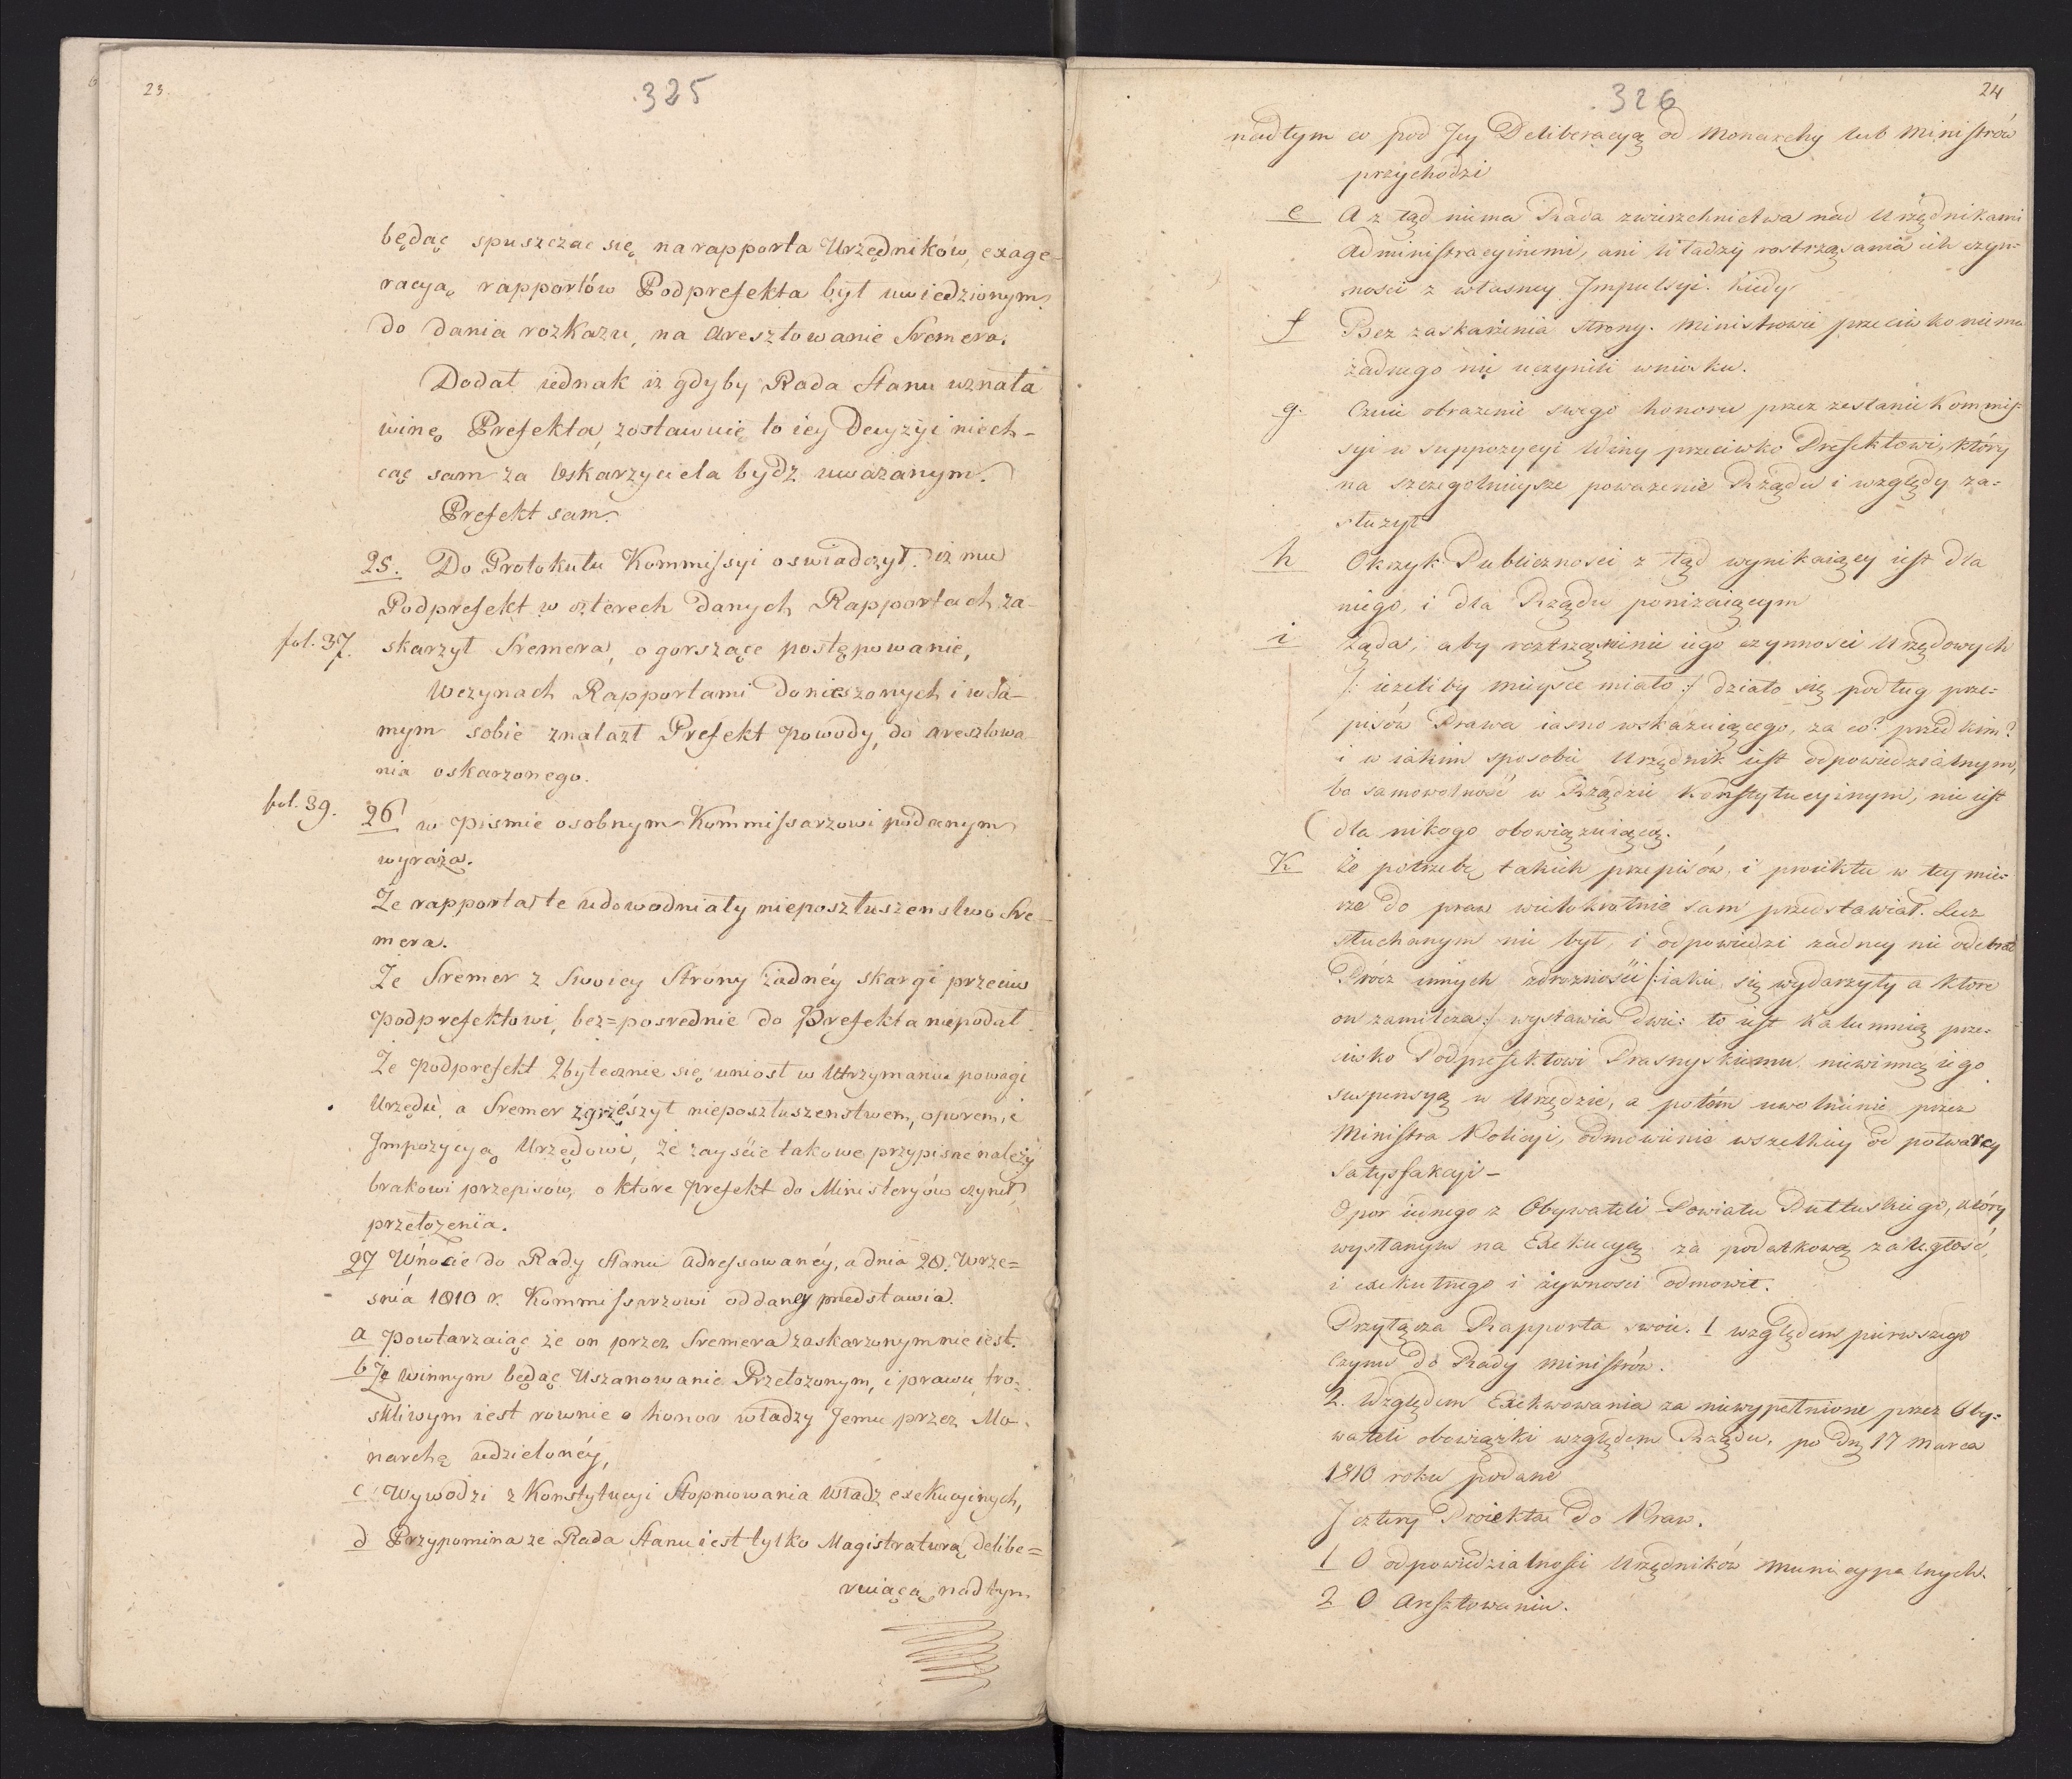 23.
325
będąc spuszczac się na rapporta Urzędników, exage-
racyą rapportów Podprefekta był uwiedzionym
do dania rozkazu, na aresztowanie Sremera.
Dodał iednak iz gdyby Rada Stanu uznała
winę Prefekta, zostawuię to iey Decyzyi niech-
cąc sam za Oskarzyciela bydz uwazanym.
Prefekt sam.
25. Do Protokułu Kommissyi oswiadczył. iz mu
Podprefekt w czterech danych Rapportach za-
fol. 37. skarzył Sremera, o gorszące postępowanie,
W czynach Rapportami donieszonych i wda-
nym sobie znalazł Prefekt powody, do aresztowa
nia oskarzonego.
fol. 39. 26 w pismie osobnym Kommissarzowi podanym
wyraża.
Ze rapporta te udowodniały nieposztuszenstwo Sre-
mera.
Ze Sremer z Swoiey Strony żadnéy skargi przeciw
Podprefektowi, bez=posrednie do Prefekta niepodał
Ze Podprefekt Zbytecznie się uniosł w Utrzymaniu powagi
Urzędu, a Sremer zgrzészył nieposztuszenstwem, oporem, i
Impozycyą Urzędowi, że zayście takowe przypisac należy
brakowi przepisów, o ktore Prefekt do Ministeryów czynił
przełożenia.
27 W nocie do Rady Stanu adressowanéy, a dnia 28. Wrze=
snia 1810 r. Kommissarzowi oddaney przedstawia.
a Powtarzaiąc że on przez Sremera zaskarzonym nie iest.
b Że winnym będąc Uszanowanie Przełozonym, i prawu, tro=
skliwym iest rownie o honor władzy Jemu przez Mo-
narchę udzielonéy,
c Wywodzi z Konstytucyi Stopniowania Władz exekucyinych,
d Przypomina ze Rada Stanu iest tylko Magistraturą delibe=
ruiącą nad tym
24
326
nad tym co pod Jey Deliberacyą od Monarchy lub Ministrów
przychodzi
e A z tąd niema Rada zwierzchnictwa nad Urzędnikami
Administracyinemi, ani Władzy rostrząsania ich czyn-
nosci z własney Impulsyi. Kiedy
f Bez zaskarżenia strony. Ministrowie przeciwko niemu
żadnego nie uczynili wniosku.
g. Czuie obrażenie swego honoru przez zesłanie Kommis-
syi w suppozycyi Winy przeciwko Prefektowi, który
na szczegolnieysze poważenie Rządu i względy za=
służył
h Okrzyk Publicznosci z tąd wynikaiący iest dla
niego, i dla Rządu poniżaiącym
i Żąda, aby roztrząsnienie iego czynności Urzędowych
/: ieżeliby mieysce miało :/ działo się podług prze=
pisów Prawa iasno wskazuiącego, za co? przed kim?
i w iakim sposobie Urzędnik iest odpowiedzialnym,
bo samowolność w Rządzie Konstytucyinym, nie iest
dla nikogo obowiązuiącą.
K Że potrzebę takich przepisów, i proiektu w tey mie-
rze do praw wielokrotnie sam przedstawiał. Lecz
słuchanym nie był, i odpowiedzi żadney nie odebrał
Prócz innych zdrożności /: iakie się wydarzyły a ktore
on zamilcza :/ wystawia dwie: to iest kalumnią prze=
ciwko Podprefektowi Prasnyskiemu, niewinną iego
suspensyą w Urzędzie, a potém uwolnienie przez
Ministra Policyi, odmowienie wszelkiey od potwarcy
Satysfakcyi -
Opor iednego z Obywateli Powiatu Pułtuskiego, który
wysłanym na Exekucyą za podatkową zaległość,
i exekutnego i żywnosci odmowił.
Przyłącza Rapporta swoie. 1 względem pierwszego
Czynu do Rady Ministrów.
2. Względem Exekwowania za niewypełnione przez Oby=
wateli obowiązki względem Rządu, po dzę 17 Marca
1810 roku podane
I cztery Proiekta do Praw.
1 O odpowiedzialnosci Urzędników Municypalnych.
2 O Aresztowaniu.